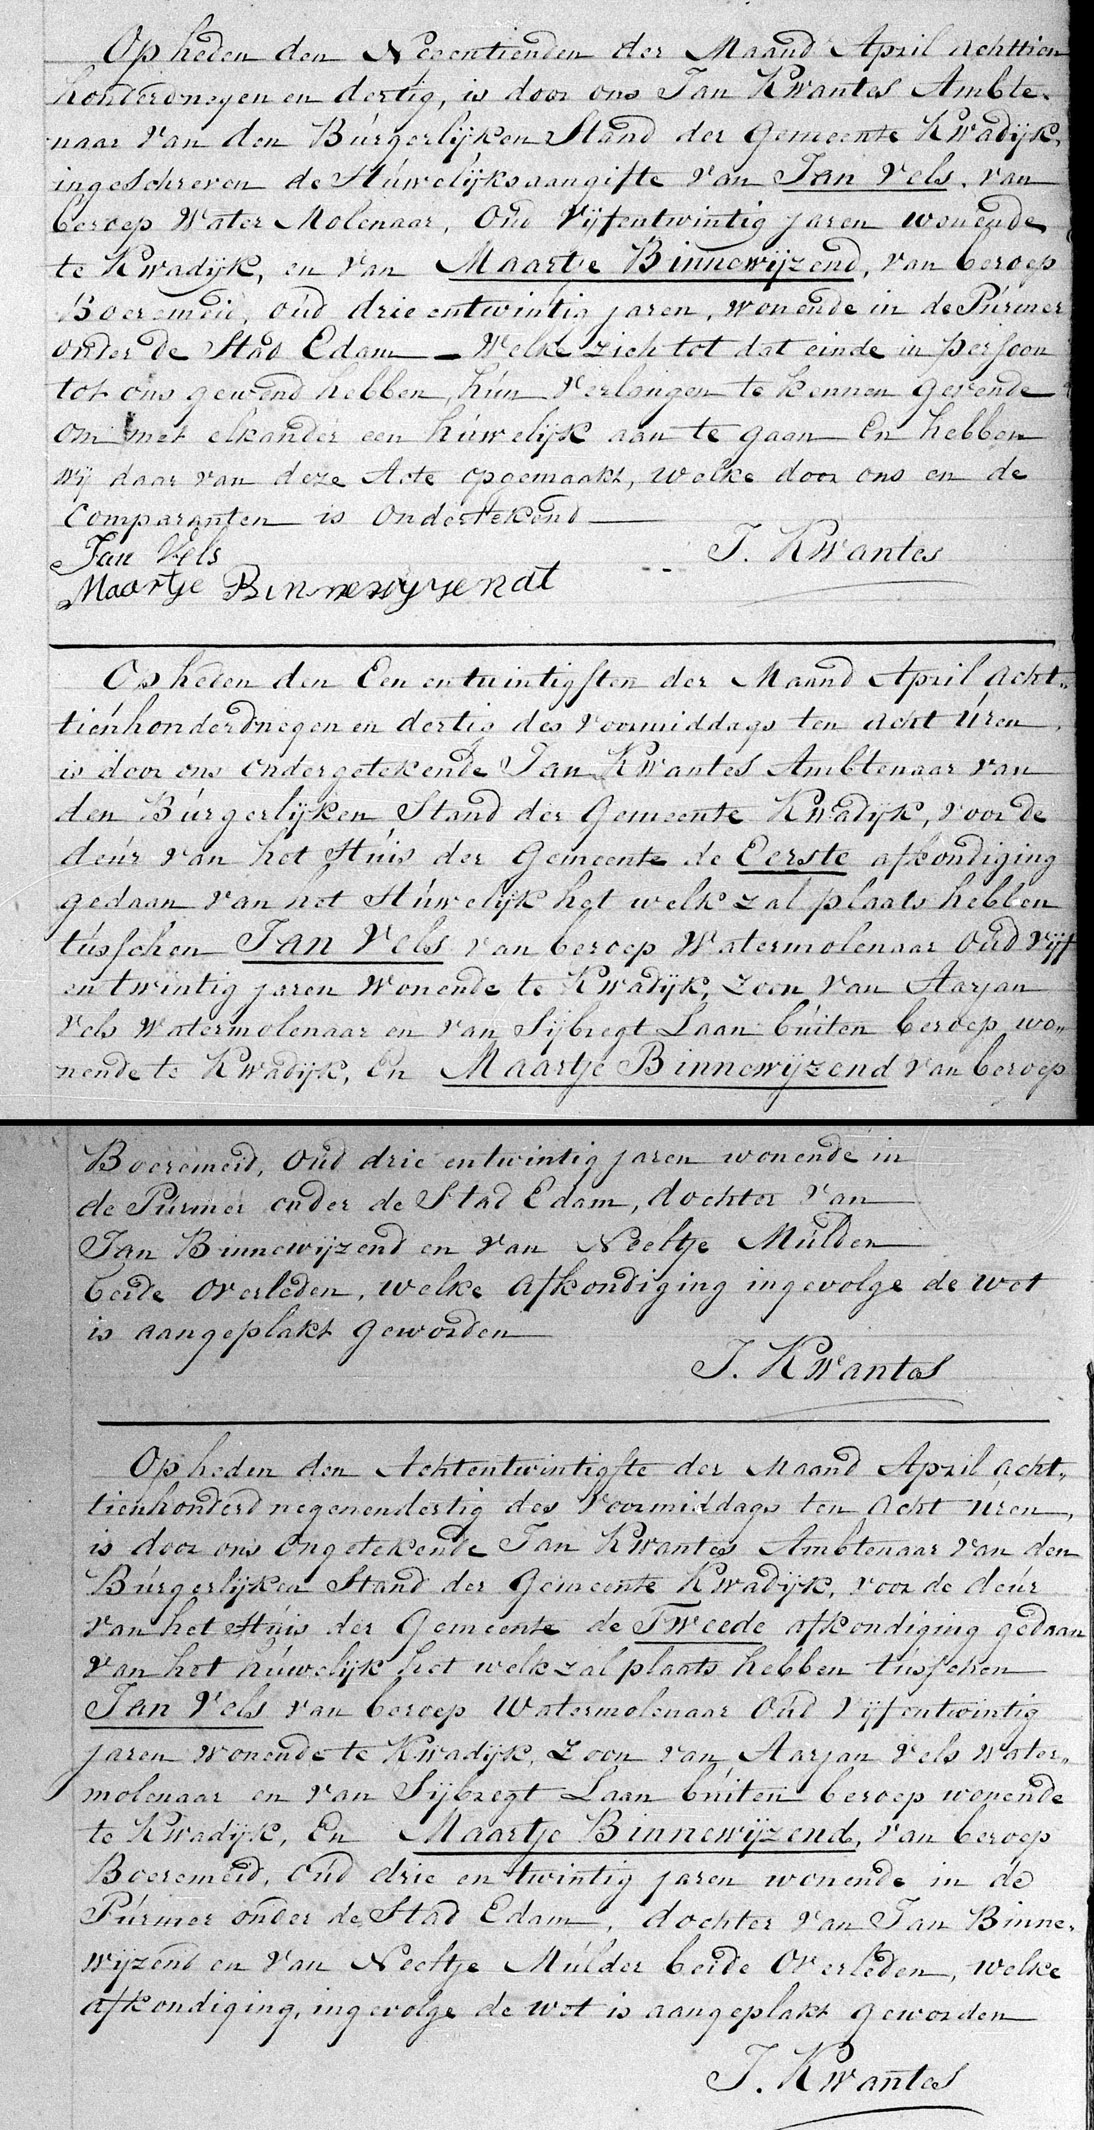 Op heden den Neegentienden der Maand April achttien
honderdnegen en dertig, is door ons Jan Kwantes Ambte-
naar van den Búrgerlijken Stand der Gemeente Kwadijk,
ingeschreven de Húwelijksaangifte van Jan Vels, van
beroep Water Molenaar, oud vijfentwintig jaren wonende
te Kwadijk, en van Maartje Binnewijzend, van beroep
Boeremeid, oúd drie entwintig jaren, wonende in de Púrmer
onder de Stad Edam — Welke zich tot dat einde in persoon
tot ons gewend hebben, hún verlangen te kennen gevende
om met elkander een húwelijk aan te gaan En hebben
wij daar van deze Acte opgemaakt, welke door ons en de
Comparanten is ondertekend
Jan Vels
J. Kwantes
Maartje Binnewyzendt
Op heden den Een entwintigsten der Maand April acht„
tiénhonderdnegen en dertig des voormiddags ten acht úren,
is door ons ondergetekende Jan Kwantes Ambtenaar van
den Búrgerlijken Stand der Gemeente Kwadijk, voor de
deúr van het Húis der Gemeente de Eerste afkondiging
gedaan van het Húwelijk het welk zal plaats hebben
tússchen Jan Vels van beroep Watermolenaar oúd vijf
en twintig jaren wonende te Kwadijk, zoon van Aarjan
Vels watermolenaar en van Sijbregt Laan búiten beroep wo„
nende te Kwadijk, En Maartje Binnewijzend van beroep
Boeremeid, oúd drie entwintig jaren wonende in
de Púrmer onder de Stad Edam, dochter van
Jan Binnewijzend en van Neeltje Múlder
beide overleden, welke afkondiging ingevolge de wet
is aangeplakt geworden
J. Kwantes
Op heden den Achtentwintigste der Maand April acht„
tienhonderd negenendertig des voormiddags ten acht úren,
is door ons ongetekende Jan Kwantes Ambtenaar van den
Búrgerlijken Stand der Gemeente Kwadijk, voor de deúr
van het Húis der Gemeente de Tweede afkondiging gedaan
van het húwelijk het welk zal plaats hebben tússchen
Jan Vels van beroep Watermolenaar oúd vijfentwintig
jaren wonende te Kwadijk, Zoon van Aarjan Vels water„
molenaar en van Sijbregt Laan búiten beroep wonende
te Kwadijk, En Maartje Binnewijzend, van beroep
Boeremeid, oúd drie en twintig jaren wonende in de
Púrmer onder de Stad Edam, dochter van Jan Binne„
wijzend en van Neeltje Múlder beide overleden, welke
afkondiging, ingevolge de wet is aangeplakt geworden
J. Kwantes